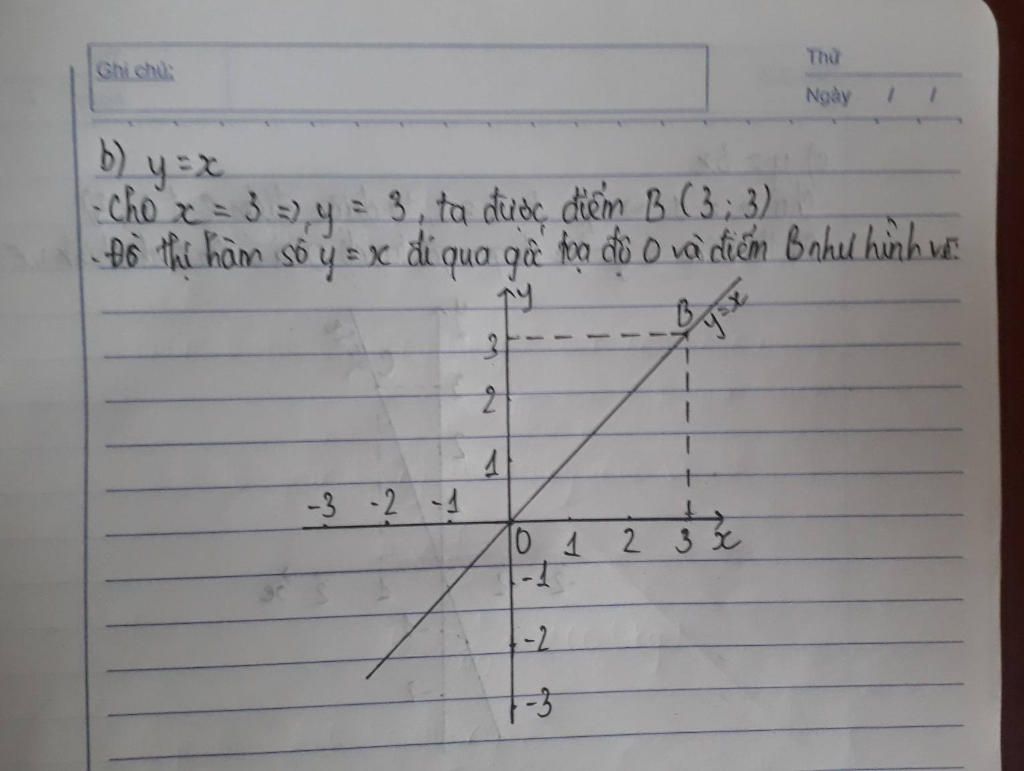 Ghi chú:
Thứ
Ngày / /
b) y = x
- Cho x = 3 => y = 3, ta được điểm B (3; 3)
- Đồ thị hàm số y = x đi qua gốc toạ độ O và điểm B như hình vẽ.
y
B
y=x
3
2
1
-3 -2 -1
0 1 2 3 x
-1
-2
-3